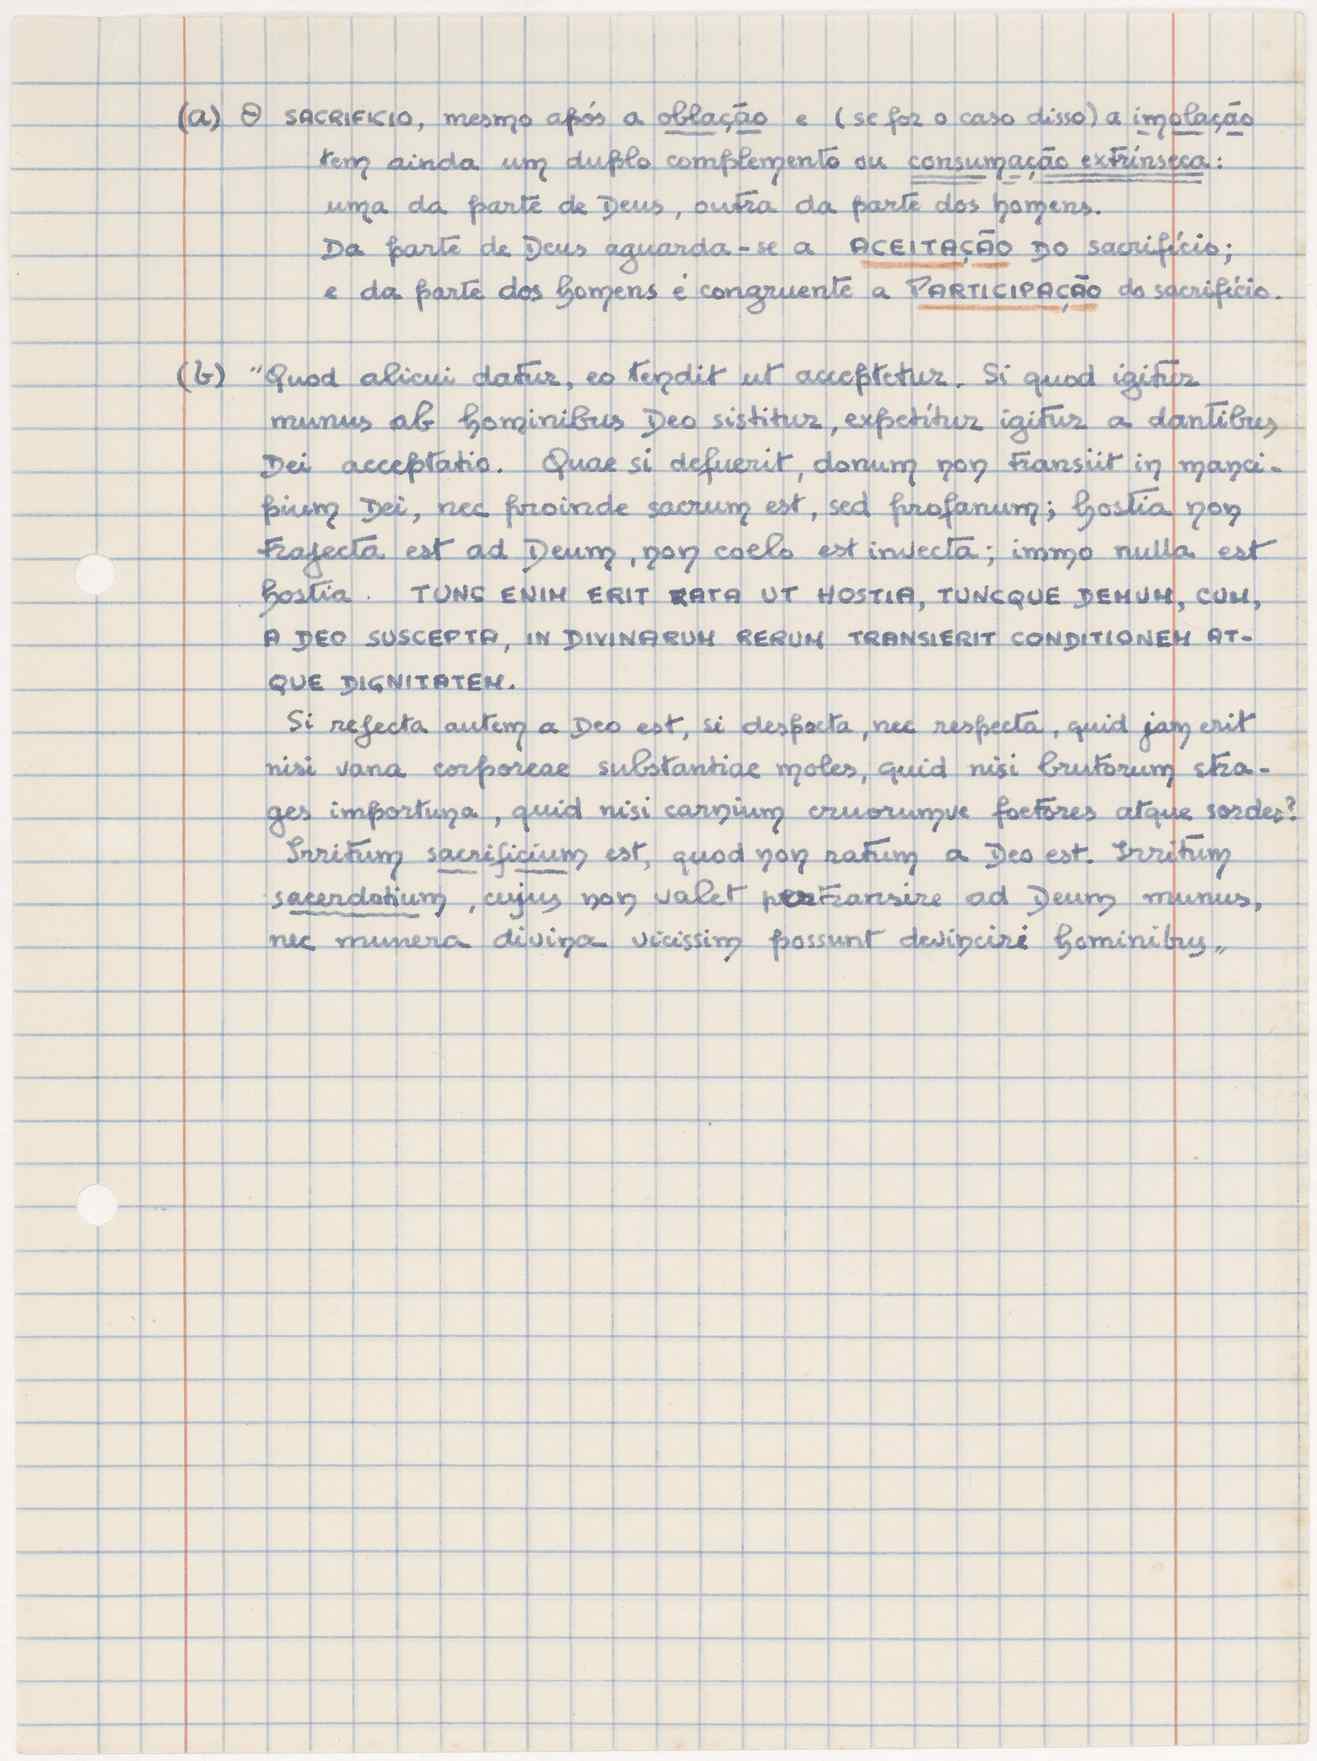 (a) O SACRIFICIO, mesmo após a oblação e (se for o caso disso) a imolação
tem ainda um duplo complemento ou consumação extrínseca:
uma da parte de Deus, outra da parte dos homens.
Da parte de Deus aguarda-se a ACEITAÇÃO DO sacrifício;
e da parte dos homens é congruente a PARTICIPAÇÃO do sacrifício.
(b) "Quod alicui datur, eo tendit ut acceptetur. Si quod igitur
munus ab hominibus Deo sistitur, expetítur igitur a dantibus
Dei acceptatio. Quae si defuerit, donum non transiit in manci-
pium Dei, nec proinde sacrum est, sed profanum; hostia non
trajecta est ad Deum, non coelo est invecta; immo nulla est
hostia. TUNC ENIM ERIT RATA UT HOSTIA, TUNCQUE DEMUM, CUM,
A DEO SUSCEPTA, IN DIVINARUM RERUM TRANSIERIT CONDITIONEM AT-
QUE DIGNITATEM.
Si rejecta autem a Deo est, si despecta, nec respecta, quid jam erit
nisi vana corporeae substantiae moles, quid nisi brutorum stra-
ges importuna, quid nisi carnium cruorumve foetores atque sordes?
Irritum sacrificium est, quod non ratum a Deo est. Irritum
sacerdotium, cujus non valet pertransire ad Deum munus,
nec munera divina vicissim possunt devinciri hominibus„